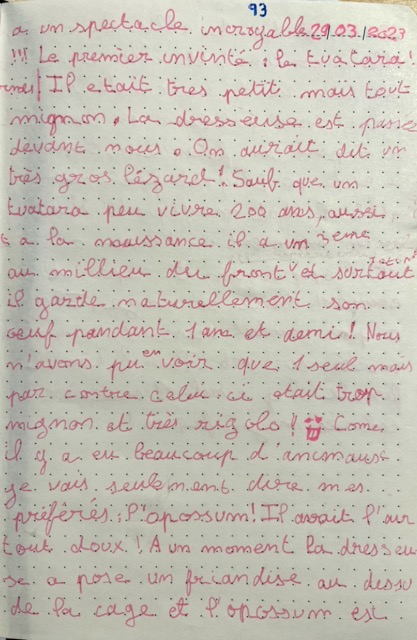 93
a un spectacle incroyable 29.03.2023
!!! Le premier invité : le tuatara!
Il etait tres petit mais tout
mignon. La dresseuse est passé
devant nous. On aurait dit un
très gros lézard! Saub que un
tuatara peu vivre 200 ans, aussi
a la naissance il a un 3eme
au millieu du front et surtout
il garde naturellement son
oeuf pandant 1 ans et demi! Nous
n'avons pu en voir que 1 seul mais
par contre celui ci etait trop
mignon et très rigolo! Come
il y a eu beaucoup d'animaux
je vais seulement dire mes
préférés : l'opossum! Il avait l'air
tout doux! A un moment la dresseu
se a pose un friandise au dessu
de la cage et l'opossum est